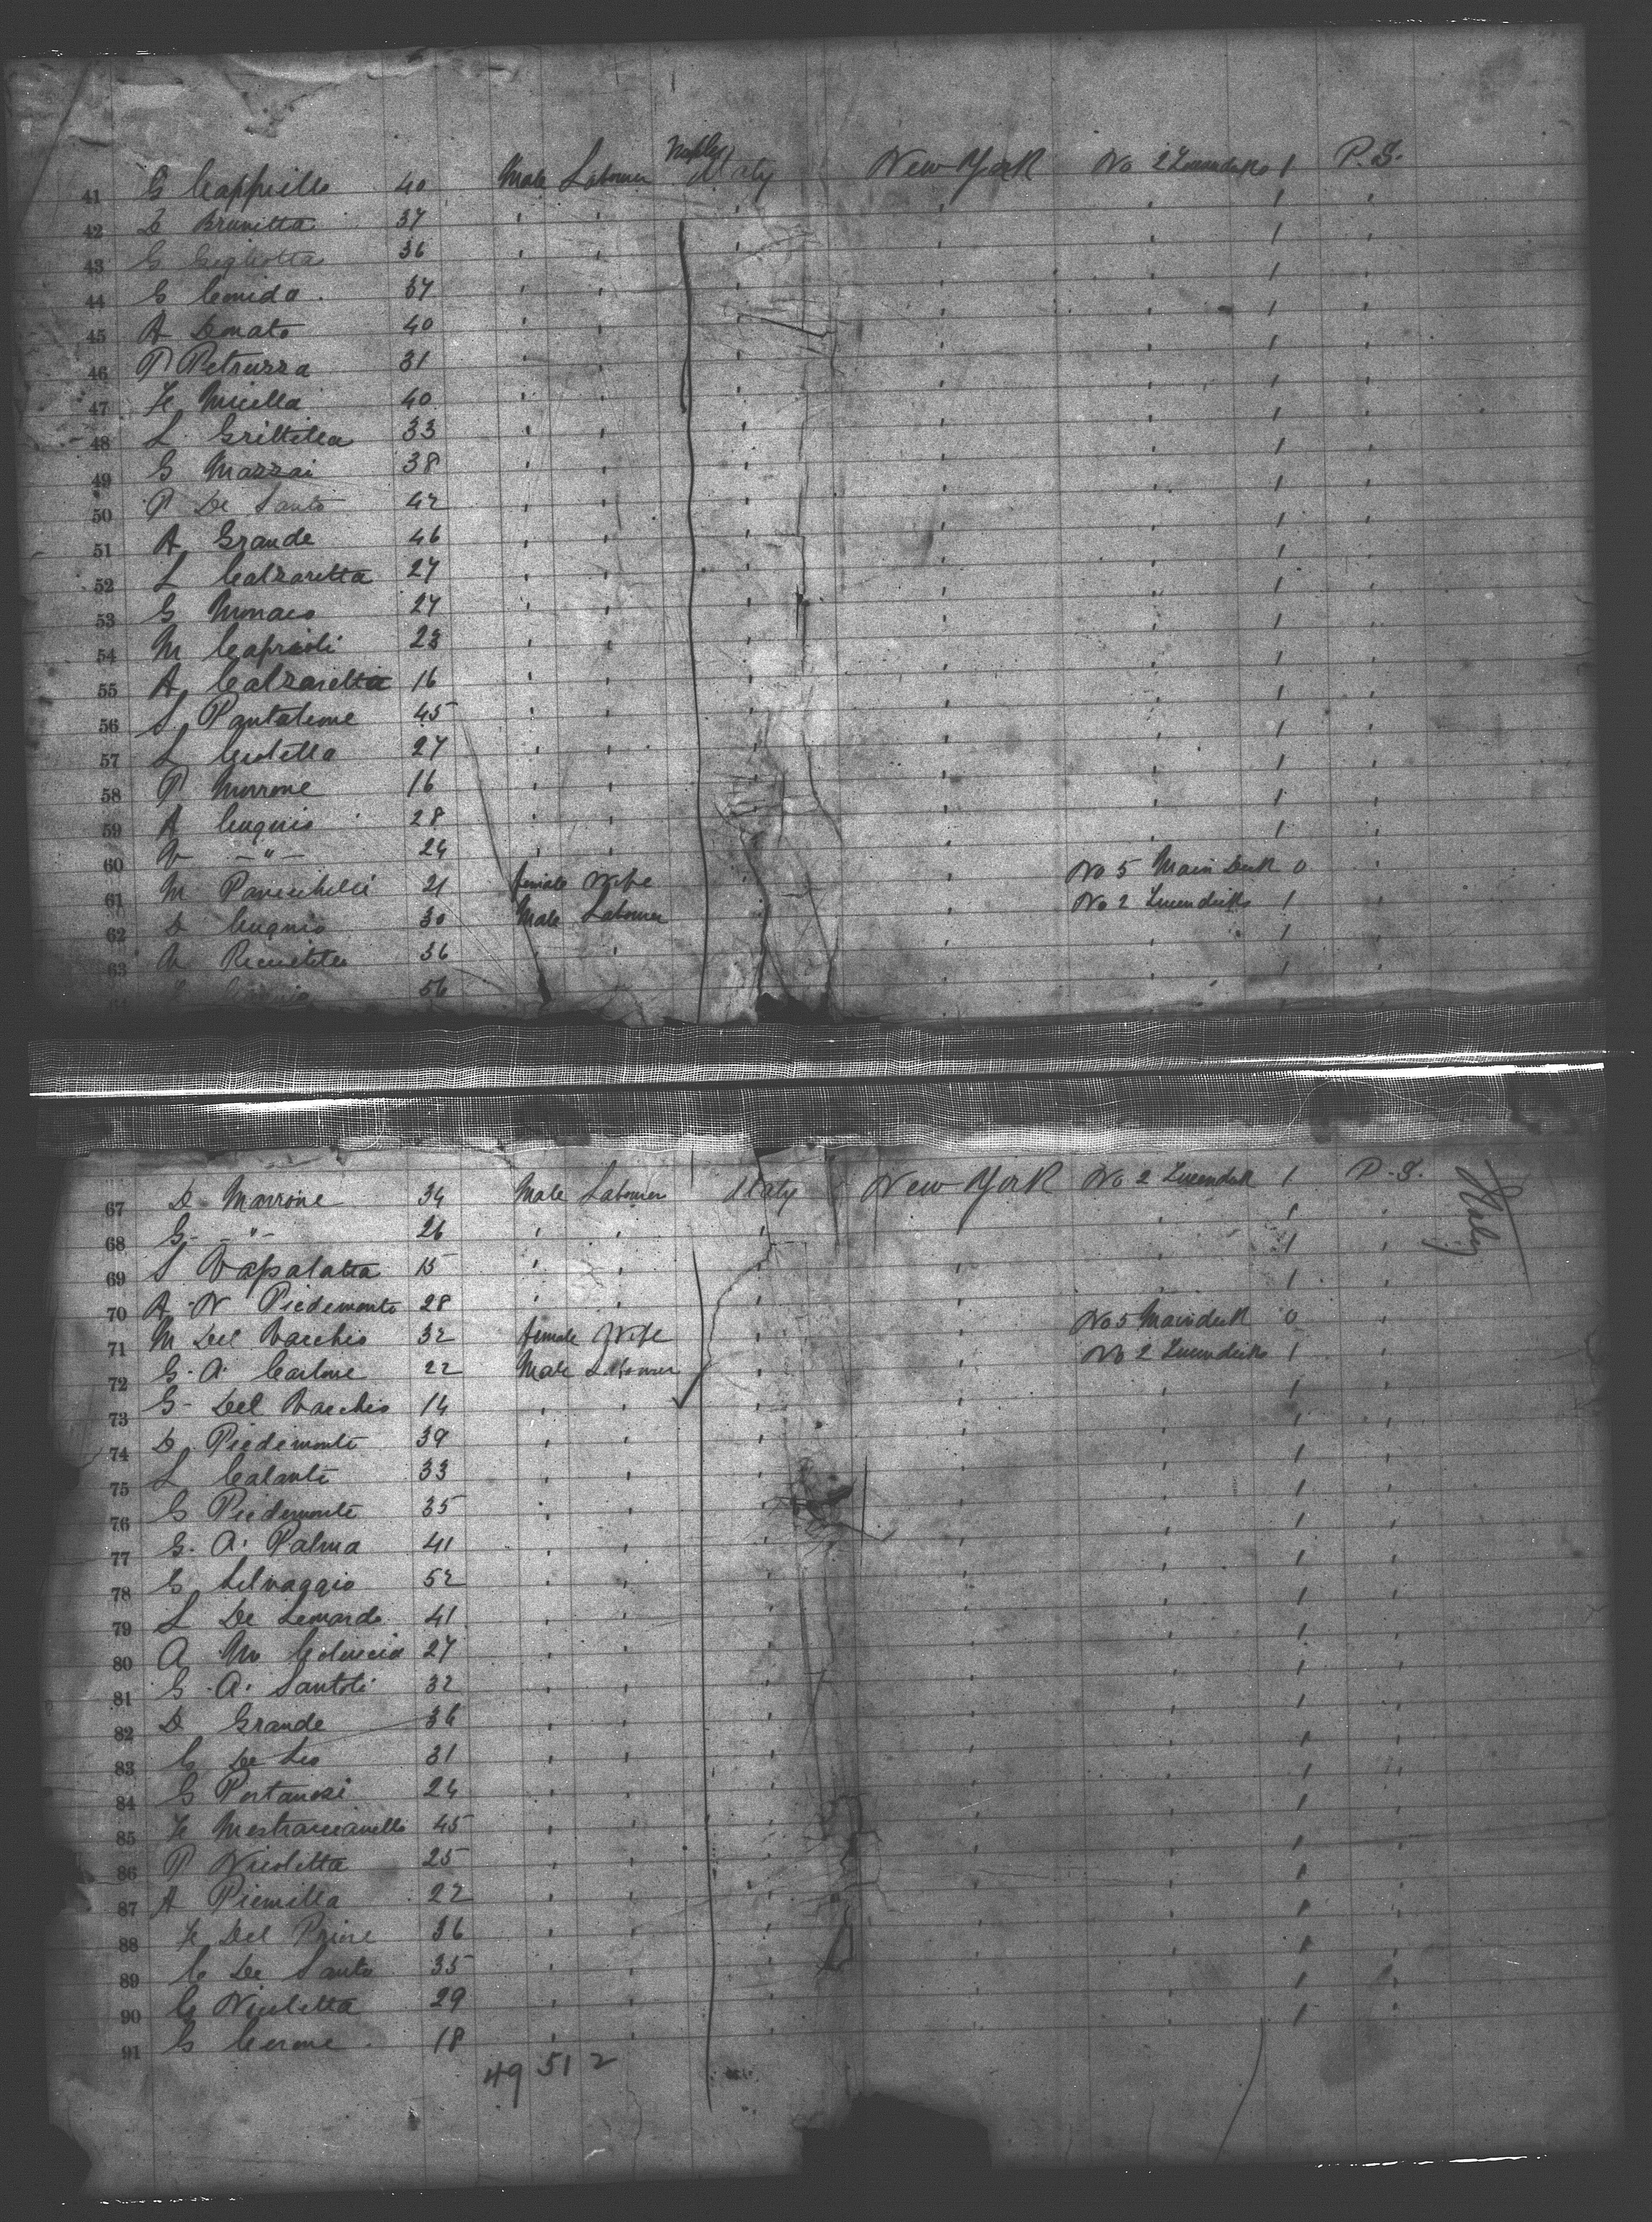 Naples
41 G Cappiello 40 Male Labourer Italy New York No 2 Tweendecks 1 P.S.
42 D Brunetta 37 " " " " " 1 "
43 G Gigliotta 36 " " " " " 1 "
44 G 37 " " " " " 1 "
45 A Donato 40 " " " " " 1 "
46 P Petruzza 31 " " " " " 1 "
47 F Micella 40 " " " " " 1 "
48 L Grittella 33 " " " " " 1 "
49 G Mazzai 38 " " " " " 1 "
50 P De Santo 42 " " " " " 1 "
51 A Grande 46 " " " " " 1 "
52 L Calzaretta 27 " " " " " 1 "
53 G Monaco 27 " " " " " 1 "
54 M Caprioli 23 " " " " " 1 "
55 A Calzaretta 16 " " " " " 1 "
56 S Pantaleone 45 " " " " " 1 "
57 L 27 " " " " " 1 "
58 P Morrone 16 " " " " " 1 "
59 A Cugnio 28 " " " " " 1 "
60 V -"- 24 " " " " " 1 "
61 M 21 female Wife " " No 5 Main Deck 0 "
62 D Cugnio 30 Male Labourer " " No 2 Tweendecks 1 "
63 36 " " " " " 1 "
56
67 D Morrone 34 Male Labourer Italy New York No 2 Tweendeck 1 P.S.
68 G -"- 26 " " " " " 1 "
69 S Vapalatta 15 " " " " " 1 "
70 A. N Piedemonte 28 " " " " " 1 "
71 M Del Vacchio 32 female Wife " " No 5 Maindeck 0 "
72 G. A. Carlone 22 Male Labourer " " No 2 Tweendecks 1 "
73 G. Del Vacchio 14 " " " " " 1 "
74 D Piedemonte 39 " " " " " 1 "
75 L Calanti 33 " " " " " 1 "
76 G Piedemonte 35 " " " " " 1 "
77 G. A. Palma 41 " " " " " 1 "
78 G Selvaggio 52 " " " " " 1 "
79 L De Leonardo 41 " " " " " 1 "
80 A M Coluccia 27 " " " " " 1 "
81 G. A. Santoli 32 " " " " " 1 "
82 D Grande 36 " " " " " 1 "
83 C De Leo 31 " " " " " 1 "
84 G Portanosi 24 " " " " " 1 "
85 F 45 " " " " " 1 "
86 P Nicoletta 25 " " " " " 1 "
87 A Piemilla 22 " " " " " 1 "
88 F Del Priore 36 " " " " " 1 "
89 C De Santo 35 " " " " " 1 "
90 C Nicoletta 29 " " " " " 1 "
91 G Cerone 18 " " " " " 1
49 51 2